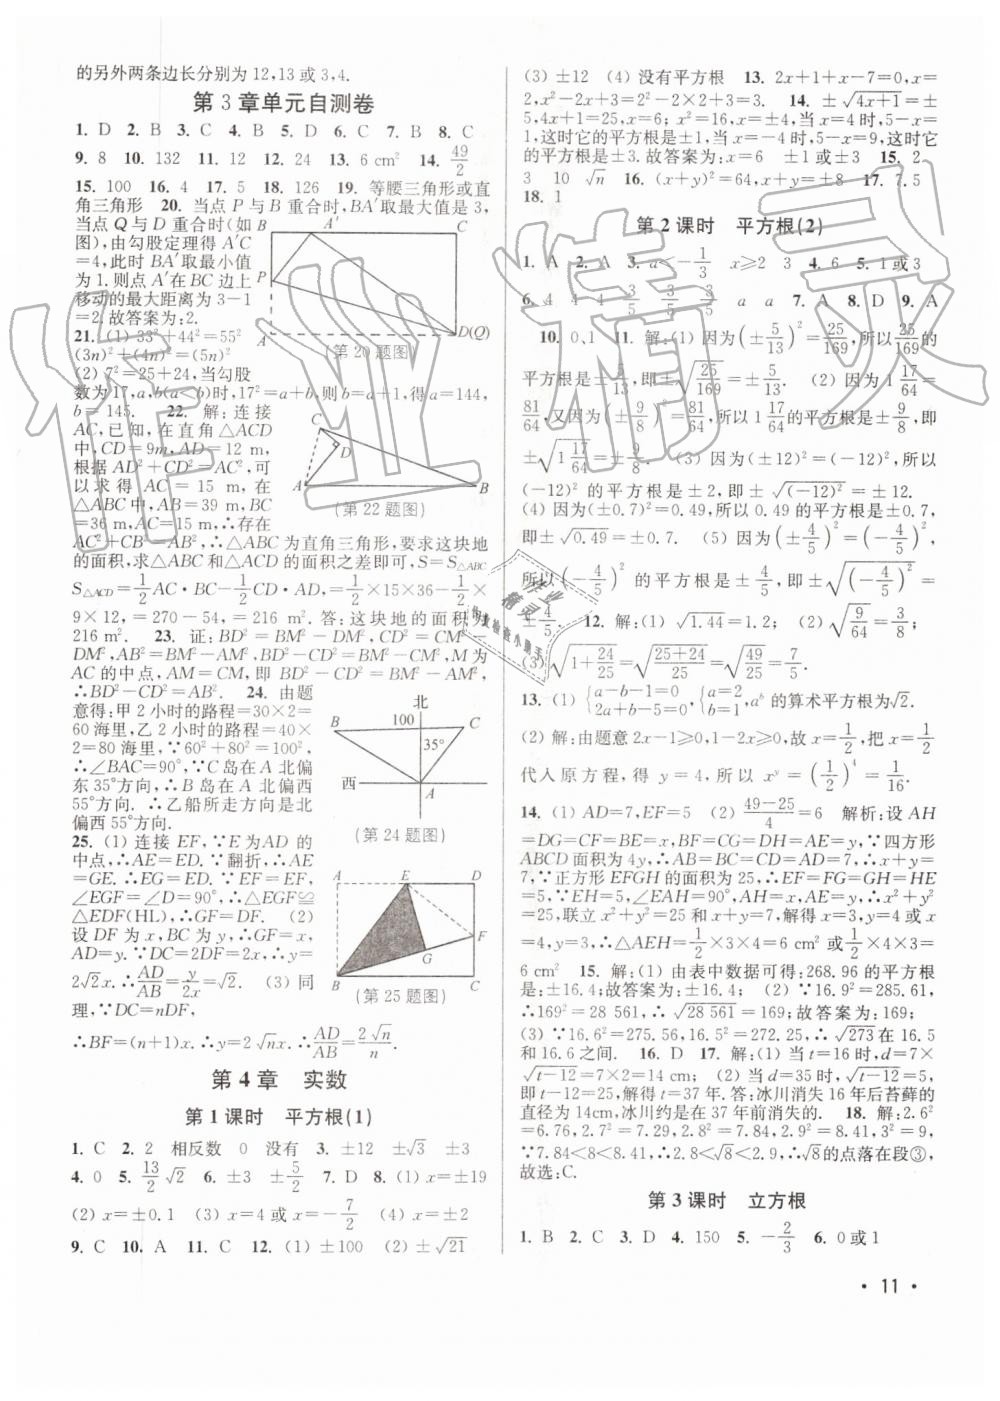 的另外两条边长分别为12,13或3,4.
第3章单元自测卷
1. D 2. B 3. C 4. B 5. C 6. C 7. B 8. C
9. 8 10. 132 11. 12 12. 24 13. 6 cm² 14. 49/2
15. 100 16. 4 17. 5 18. 126 19. 等腰三角形或直
角三角形 20. 当点P与B重合时,BA′取最大值是3,
当点Q与D重合时(如
图),由勾股定理得A′C
=4,此时BA′取最小值
为1.则点A′在BC边上
移动的最大距离为3-1
=2.故答案为:2.
B A′ C
P
A D(Q)
(第20题图)
21. (1) 33²+44²=55²
(3n)²+(4n)²=(5n)²
(2) 7²=25+24,当勾股
数为17,a,b(a<b)时,17²=a+b,则b=a+1,得a=144,
b=145. 22. 解:连接
AC,已知,在直角△ACD
中,CD=9m,AD=12 m,
根据AD²+CD²=AC²,可
以求得AC=15 m,在
△ABC中,AB=39 m,BC
=36 m,AC=15 m,∴存在
C
D
A B
(第22题图)
AC²+CB²=AB²,∴△ABC为直角三角形,要求这块地
的面积,求△ABC和△ACD的面积之差即可,S=S△ABC
S△ACD=1/2AC·BC-1/2CD·AD,=1/2×15×36-1/2×
9×12,=270-54,=216 m².答:这块地的面积为
216 m². 23. 证:BD²=BM²-DM², CD²=CM²-
DM²,AB²=BM²-AM²,BD²-CD²=BM²-CM²,M为
AC的中点,AM=CM,即BD²-CD²=BM²-AM²,
∴BD²-CD²=AB². 24. 由题
意得:甲2小时的路程=30×2=
60海里,乙2小时的路程=40×
2=80海里,∵60²+80²=100²,
∴∠BAC=90°,∵C岛在A北偏
东35°方向,∴B岛在A北偏西
55°方向.∴乙船所走方向是北
偏西55°方向.
北
B 100 C
35°
西
A
(第24题图)
25. (1) 连接EF,∵E为AD的
中点,∴AE=ED.∵翻折,∴AE
=GE.∴EG=ED.∵EF=EF,
∠EGF=∠D=90°,∴△EGF≌
△EDF(HL),∴GF=DF. (2)
设DF为x,BC为y,∴GF=x,
AD=y.∵DC=2DF=2x,∴y=
2√2x.∴AD/AB=y/2x=√2. (3)同
理,∵DC=nDF,
∴BF=(n+1)x.∴y=2√nx.∴AD/AB=2√n/n.
A E D
F
G
B C
(第25题图)
第4章 实数
第1课时 平方根(1)
1. C 2. 2 相反数 0 没有 3. ±12 ±√3 ±3
4. 0 5. 13/2 √2 6. ±3 ±5/2 7. D 8. (1) x=±19
(2) x=±0.1 (3) x=4或x=-7/2 (4) x=±2
9. C 10. A 11. C 12. (1) ±100 (2) ±√21
(3) ±12 (4) 没有平方根 13. 2x+1+x-7=0,x=
2,x²-2x+3=2²-2×2+3=3. 14. ±√(4x+1)=±
5,4x+1=25,x=6;x²=16,x=±4,当x=4时,5-x=
1,这时它的平方根是±1,当x=-4时,5-x=9,这时它
的平方根是±3.故答案为:x=6 ±1或±3 15. 2
3 10 √n 16. (x+y)²=64,x+y=±8 17. 7.5
18. 1
第2课时 平方根(2)
1. A 2. A 3. a<-1/3 x≥2 3 4. 6 5. 1或3
6. 4 4 4 3/5 3/5 3/5 a a 7. A 8. D 9. A
10. 0,1 11. 解:(1) 因为(±5/13)²=25/169,所以25/169的
平方根是±5/13,即±√(25/169)=±5/13. (2) 因为1 17/64=
81/64,又因为(±9/8)²=81/64,所以1 17/64的平方根是±9/8,即
±√(1 17/64)=±9/8. (3) 因为(±12)²=(-12)²,所以
(-12)²的平方根是±2,即±√(-12)²=±12.
(4) 因为(±0.7)²=0.49,所以0.49的平方根是±0.7,
即±√0.49=±0.7. (5) 因为(±4/5)²=(-4/5)²,
所以(-4/5)²的平方根是±4/5,即±√(-4/5)²=
±4/5. 12. 解:(1) √1.44=1.2; (2) √(9/64)=3/8;
(3) √(1+24/25)=√((25+24)/25)=√(49/25)=7/5.
13. (1) {a-b-1=0 2a+b-5=0,{a=2 b=1,aᵇ的算术平方根为√2.
(2) 解:由题意2x-1≥0,1-2x≥0,故x=1/2,把x=1/2
代入原方程,得y=4,所以xʸ=(1/2)⁴=1/16.
14. (1) AD=7,EF=5 (2) (49-25)/4=6 解析:设AH
=DG=CF=BE=x,BF=CG=DH=AE=y,∵四方形
ABCD面积为4y,∴AB=BC=CD=AD=7,∴x+y=
7,∵正方形EFGH的面积为25,∴EF=FG=GH=HE
=5,∵EH=5,∠EAH=90°,AH=x,AE=y,∴x²+y²
=25,联立x²+y²=25与x+y=7,解得x=3,y=4或x
=4,y=3,∴△AEH=1/2×3×4=6 cm²或1/2×4×3=
6 cm² 15. 解:(1) 由表中数据可得:268.96的平方根
是:±16.4;故答案为:±16.4; (2) ∵16.9²=285.61,
∴169²=28 561,∴√28 561=169;故答案为:169;
(3) ∵16.6²=275.56,16.5²=272.25,∴√273在16.5
和16.6之间. 16. D 17. 解:(1) 当t=16时,d=7×
√(t-12)=7×2=14 cm; (2) 当d=35时,√(t-12)=5,
即t-12=25,解得t=37年.答:冰川消失16年后苔藓的
直径为14cm,冰川约是在37年前消失的. 18. 解:2.6²
=6.76,2.7²=7.29,2.8²=7.84,2.9²=8.41,3²=9,
∵7.84<8<8.41,∴2.8<√8<2.9,∴√8的点落在段③,
故选:C.
第3课时 立方根
1. B 2. C 3. D 4. 150 5. -2/3 6. 0或1
· 11 ·
作业精灵
作业
精灵